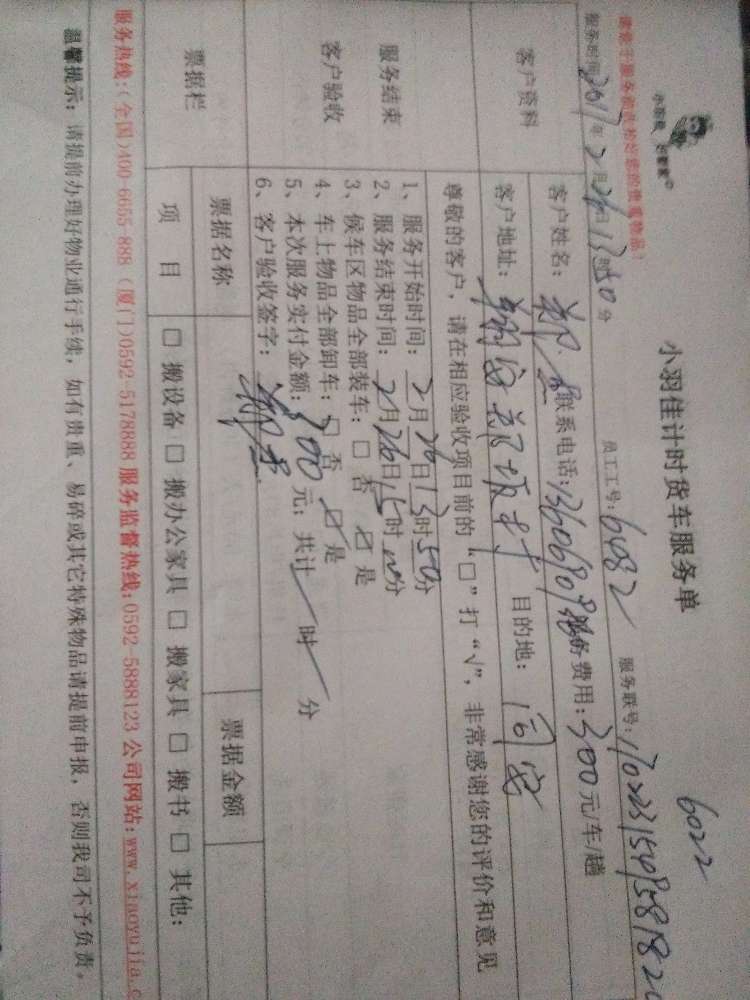 6022
小羽佳计时货车服务单
小羽佳 好管家
请亲手服务前收拾好您的贵重物品!
员工工号: 6082 服务联号: 1702231549581820
服务时间 2017年2月26日13时50分
客户资料
客户姓名: 郑 联系电话: 服务费用: 300元/车/趟
客户地址: 目的地: 同安
尊敬的客户, 请在相应验收项目前的“□”打“√”, 非常感谢您的评价和意见
服务结束
客户验收
1、服务开始时间: 2月26日13时50分
2、服务结束时间: 2月26日15时00分
3、候车区物品全部装车: □ 否 ☑ 是
4、车上物品全部卸车: □ 否 ☑ 是
5、本次服务实付金额: 300元; 共计 / 时 / 分
6、客户验收签字: 郑
票据栏
票据名称 票据金额
项 目 □ 搬设备 □ 搬办公家具 □ 搬家具 □ 搬书 □ 其他:
服务热线:(全国)400-6655-888 (厦门)0592-5178888 服务监督热线:0592-5888123 公司网站:www.xiaoyujia.c
温馨提示: 请提前办理好物业通行手续, 如有贵重、易碎或其它特殊物品请提前申报, 否则我司不予负责。